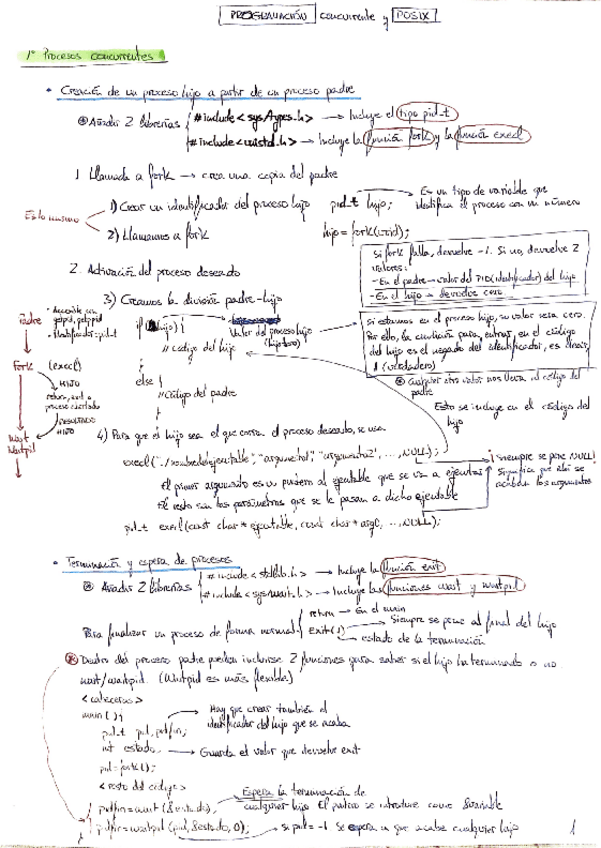 PROGRAMACIÓN concurrente y POSIX
1º Procesos concurrentes
• Creación de un proceso hijo a partir de un proceso padre
Añadir 2 librerías
#include<sys/types.h> → Incluye el tipo pid_t
#include<unistd.h> → Incluye la función fork y la función execl
1 Llamada a fork → crea una copia del padre
Es lo mismo
1) Crear un identificador del proceso hijo pid_t hijo; → Es un tipo de variable que
identifica el proceso con un número
2) Llamamos a fork hijo = fork(void);
si fork falla, devuelve -1. Si no, devuelve 2
valores:
- En el padre → valor del PID (identificador) del hijo
- En el hijo → devuelve cero
2. Activación del proceso deseado
3) Creamos la división padre-hijo
if (hijo) {
Valor del proceso hijo
(hijo=cero)
// código del hijo
}
else {
//código del padre
}
si estamos en el proceso hijo, su valor será cero.
Por ello, la condición para entrar en el código
del hijo es el negado del identificador, es decir,
1 (verdadero)
Cualquier otro valor nos lleva al código del
padre
Esto se incluye en el código del
hijo
Padre
getpid, getppid
Identificador: pid_t
Fork (execl)
HIJO
return, exit o
RESULTADO
HIJO
Wait
Waitpid
4) Para que el hijo sea el que corra el proceso deseado, se usa
execl("./nombredelejecutable", "argumento1", "argumento2", ..., NULL);
¡Siempre se pone NULL!
Significa que ahí se
acaban los argumentos
El primer argumento es un puntero al ejecutable que se va a ejecutar
El resto son los parámetros que se le pasan a dicho ejecutable
pid_t execl(const char * ejecutable, const char * arg0, ..., NULL);
• Terminación y espera de procesos
Añadir 2 librerías
#include<stdlib.h> → Incluye la función exit
#include<sys/wait.h> → Incluye las funciones wait y waitpid
Para finalizar un proceso de forma normal
return → En el main
exit( ) Siempre se pone al final del hijo
estado de la terminación
Dentro del proceso padre pueden incluirse 2 funciones para saber si el hijo ha terminado o no
wait/waitpid. (Waitpid es más flexible)
<cabeceras>
main( ) {
pid_t pid, pidfin; → Hay que crear también el
identificador del hijo que se acaba
int estado → Guarda el valor que devuelve exit
pid=fork( );
<resto del código>
pidfin=wait(&estado); → Espera la terminación de
cualquier hijo
pidfin=waitpid(pid,&estado,0); → si pid = -1 Se espera a que acabe cualquier hijo
1